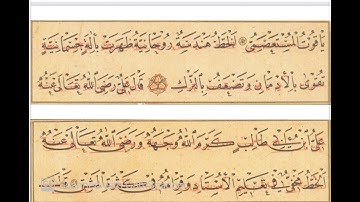 ياقوت المستعصمي الخط هندسة روحانية ظهرت بآلة جسمانية
تقوى بالإدمان وتضعف بالترك قال علي رضي الله تعالى عنه
علي ابن أبي طالب كرم الله وجهه ورضي الله تعالى عنه
الخط مخفي في تعليم الأستاذ وقوامه في كثرة المشق